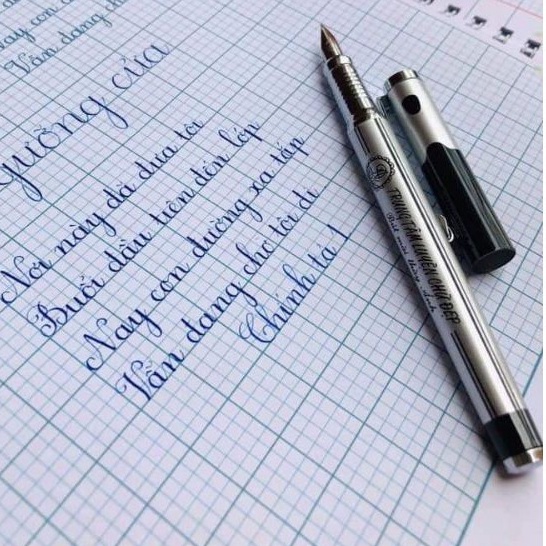 Vẫn đang ch
gưỡng cửa
Nơi này đã đưa tôi
Buổi đầu tiên đến lớp
Nay con đường xa tắp
Vẫn đang chờ tôi đi
Chính tả
TRUNG TÂM LUYỆN CHỮ ĐẸP